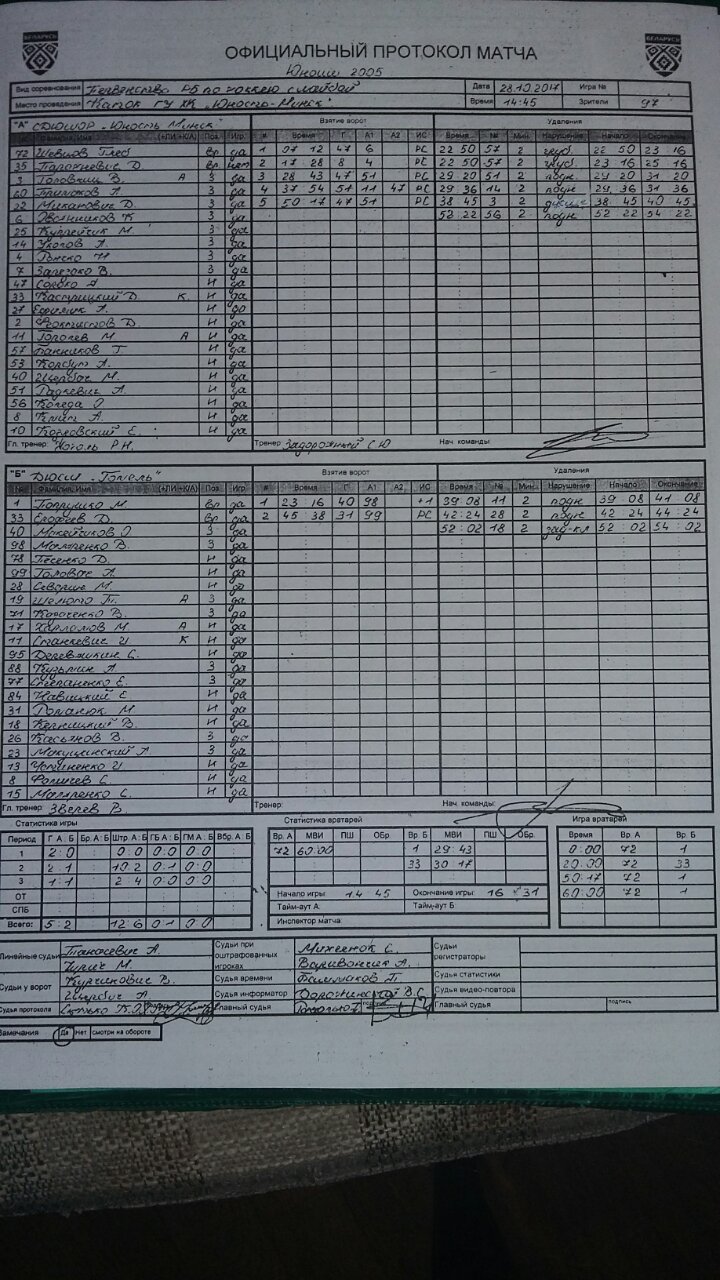 БЕЛАРУСЬ
БЕЛАРУСЬ
ОФИЦИАЛЬНЫЙ ПРОТОКОЛ МАТЧА
Юноши 2005
Вид соревнования Первенство РБ по хоккею с шайбой Дата 28.10.2017 Игра №
Место проведения Каток ГУ ХК "Юность-Минск" Время 14:45 Зрители 97
"А" СДЮШОР "Юность Минск" Взятие ворот Удаления
Фамилия, Имя (+ЛИ +К/А) Поз. Игр. # Время Г А1 А2 ИС Время № Мин. Нарушение Начало Окончание
72 Шевцов Глеб Вр да 1 07 12 47 6 РС 22 50 57 2 груб. 22 50 23 16
35 Д. Вр нет 2 17 28 8 4 РС 22 50 57 2 груб. 23 16 25 16
3 Головкин В А З да 3 28 43 47 51 РС 29 20 51 2 подн. 29 20 31 20
60 З да 4 37 54 51 11 47 РС 29 36 14 2 подн. 29 36 31 36
22 Миканович Д З да 5 50 17 47 51 РС 38 45 3 2 38 45 40 45
6 Дворников К З да 52 22 56 2 подн. 52 22 54 22
25 М. З да
14 А. З да
4 З да
7 В. З да
47 Сороко А И да
33 Кастрицкий Д. К. И да
27 А. И да
2 Феоктистов Д. И да
11 М А И да
57 Банников Г. И да
53 Корбут А. И да
40 Щербач М. И да
51 Радкевич А. И да
56 Коледа И да
8 А. И да
10 Козловский Е. И да
Гл. тренер: Коголь Р.Н. Тренер: Задорожный С.Ю Нач. команды:
"Б" ДЮСШ "Гомель" Взятие ворот Удаления
№ Фамилия, Имя (+ЛИ +К/А) Поз. Игр # Время Г А1 А2 ИС Время № Мин. Нарушение Начало Окончание
1 М. Вр да 1 23 16 40 98 +1 39 08 11 2 подн 39 08 41 08
33 Ерофеев Д. Вр да 2 45 38 31 99 РС 42:24 28 2 подн 42 24 44 24
40 З да 52:02 18 2 зад-кл 52 02 54 02
98 Маляренко В. З да
78 Песенко Д. И да
99 Головач А. И да
28 М И да
19 А З да
71 Короченко В. З да
17 Харламов М А И да
11 Станкевич И К И да
95 С. И да
88 Кузьмин А З да
77 Степаненко Е. З да
84 Навицкий Е И да
31 Романюк М И да
18 Керницкий В. И да
26 Касьянов В. З да
23 З да
13 И И да
8 Фомичев С. И да
15 Маляренко С. И да
Гл. тренер: Зверев В. Тренер: Нач. команды:
Статистика игры Статистика вратарей Игра вратарей
Период Г А:Б Бр. А:Б Штр. А:Б ГБ А:Б ГМ А:Б Вбр. А:Б Вр. А МВИ ПШ ОБр. Вр. Б МВИ ПШ ОБр. Время Вр. А Вр. Б
1 2:0 0:0 0:0 0:0 72 60:00 1 29:43 0:00 72 1
2 2:1 10:2 0:1 0:0 33 30:17 20:00 72 33
3 1:1 2:4 0:0 0:0 50:17 72 1
ОТ Начало игры: 14 45 Окончание игры: 16 31 60:00 72 1
СПБ Тайм-аут А: Тайм-аут Б:
Всего: 5:2 12:6 0:1 0:0 Инспектор матча:
Линейные судьи Танасевич А. Судьи при оштрафованных игроках Михеенок С. Судьи регистраторы
М. Варивончик А.
Судьи у ворот Курчикович В. Судья времени Судья статистики
Щербач А Судья информатор В.С. Судья видео-повтора
Судья протокола Главный судья подпись Главный судья подпись
Замечания Да Нет смотри на обороте